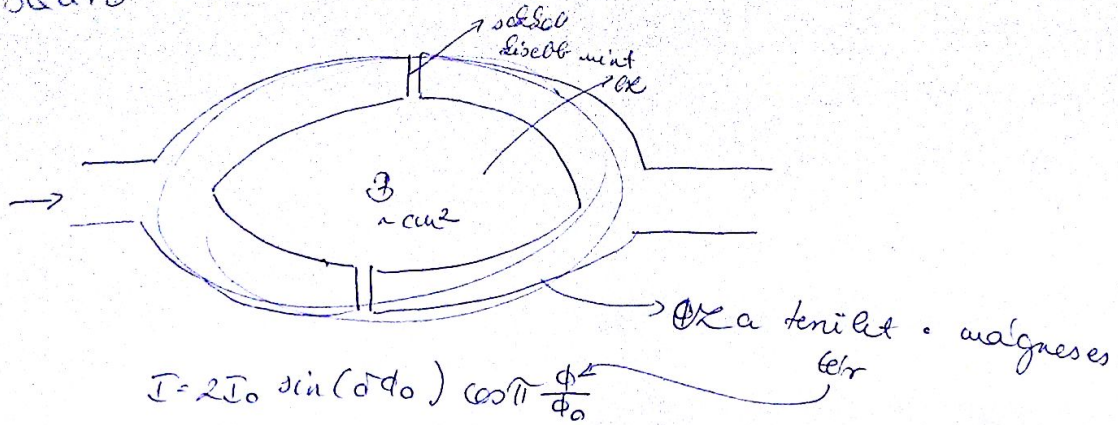 SQUID
sokkal
kisebb mint
ez
Φ
~cm²
ez a terület · mágneses
tér
I = 2I₀ sin(δϕ₀) cos π Φ/Φ₀